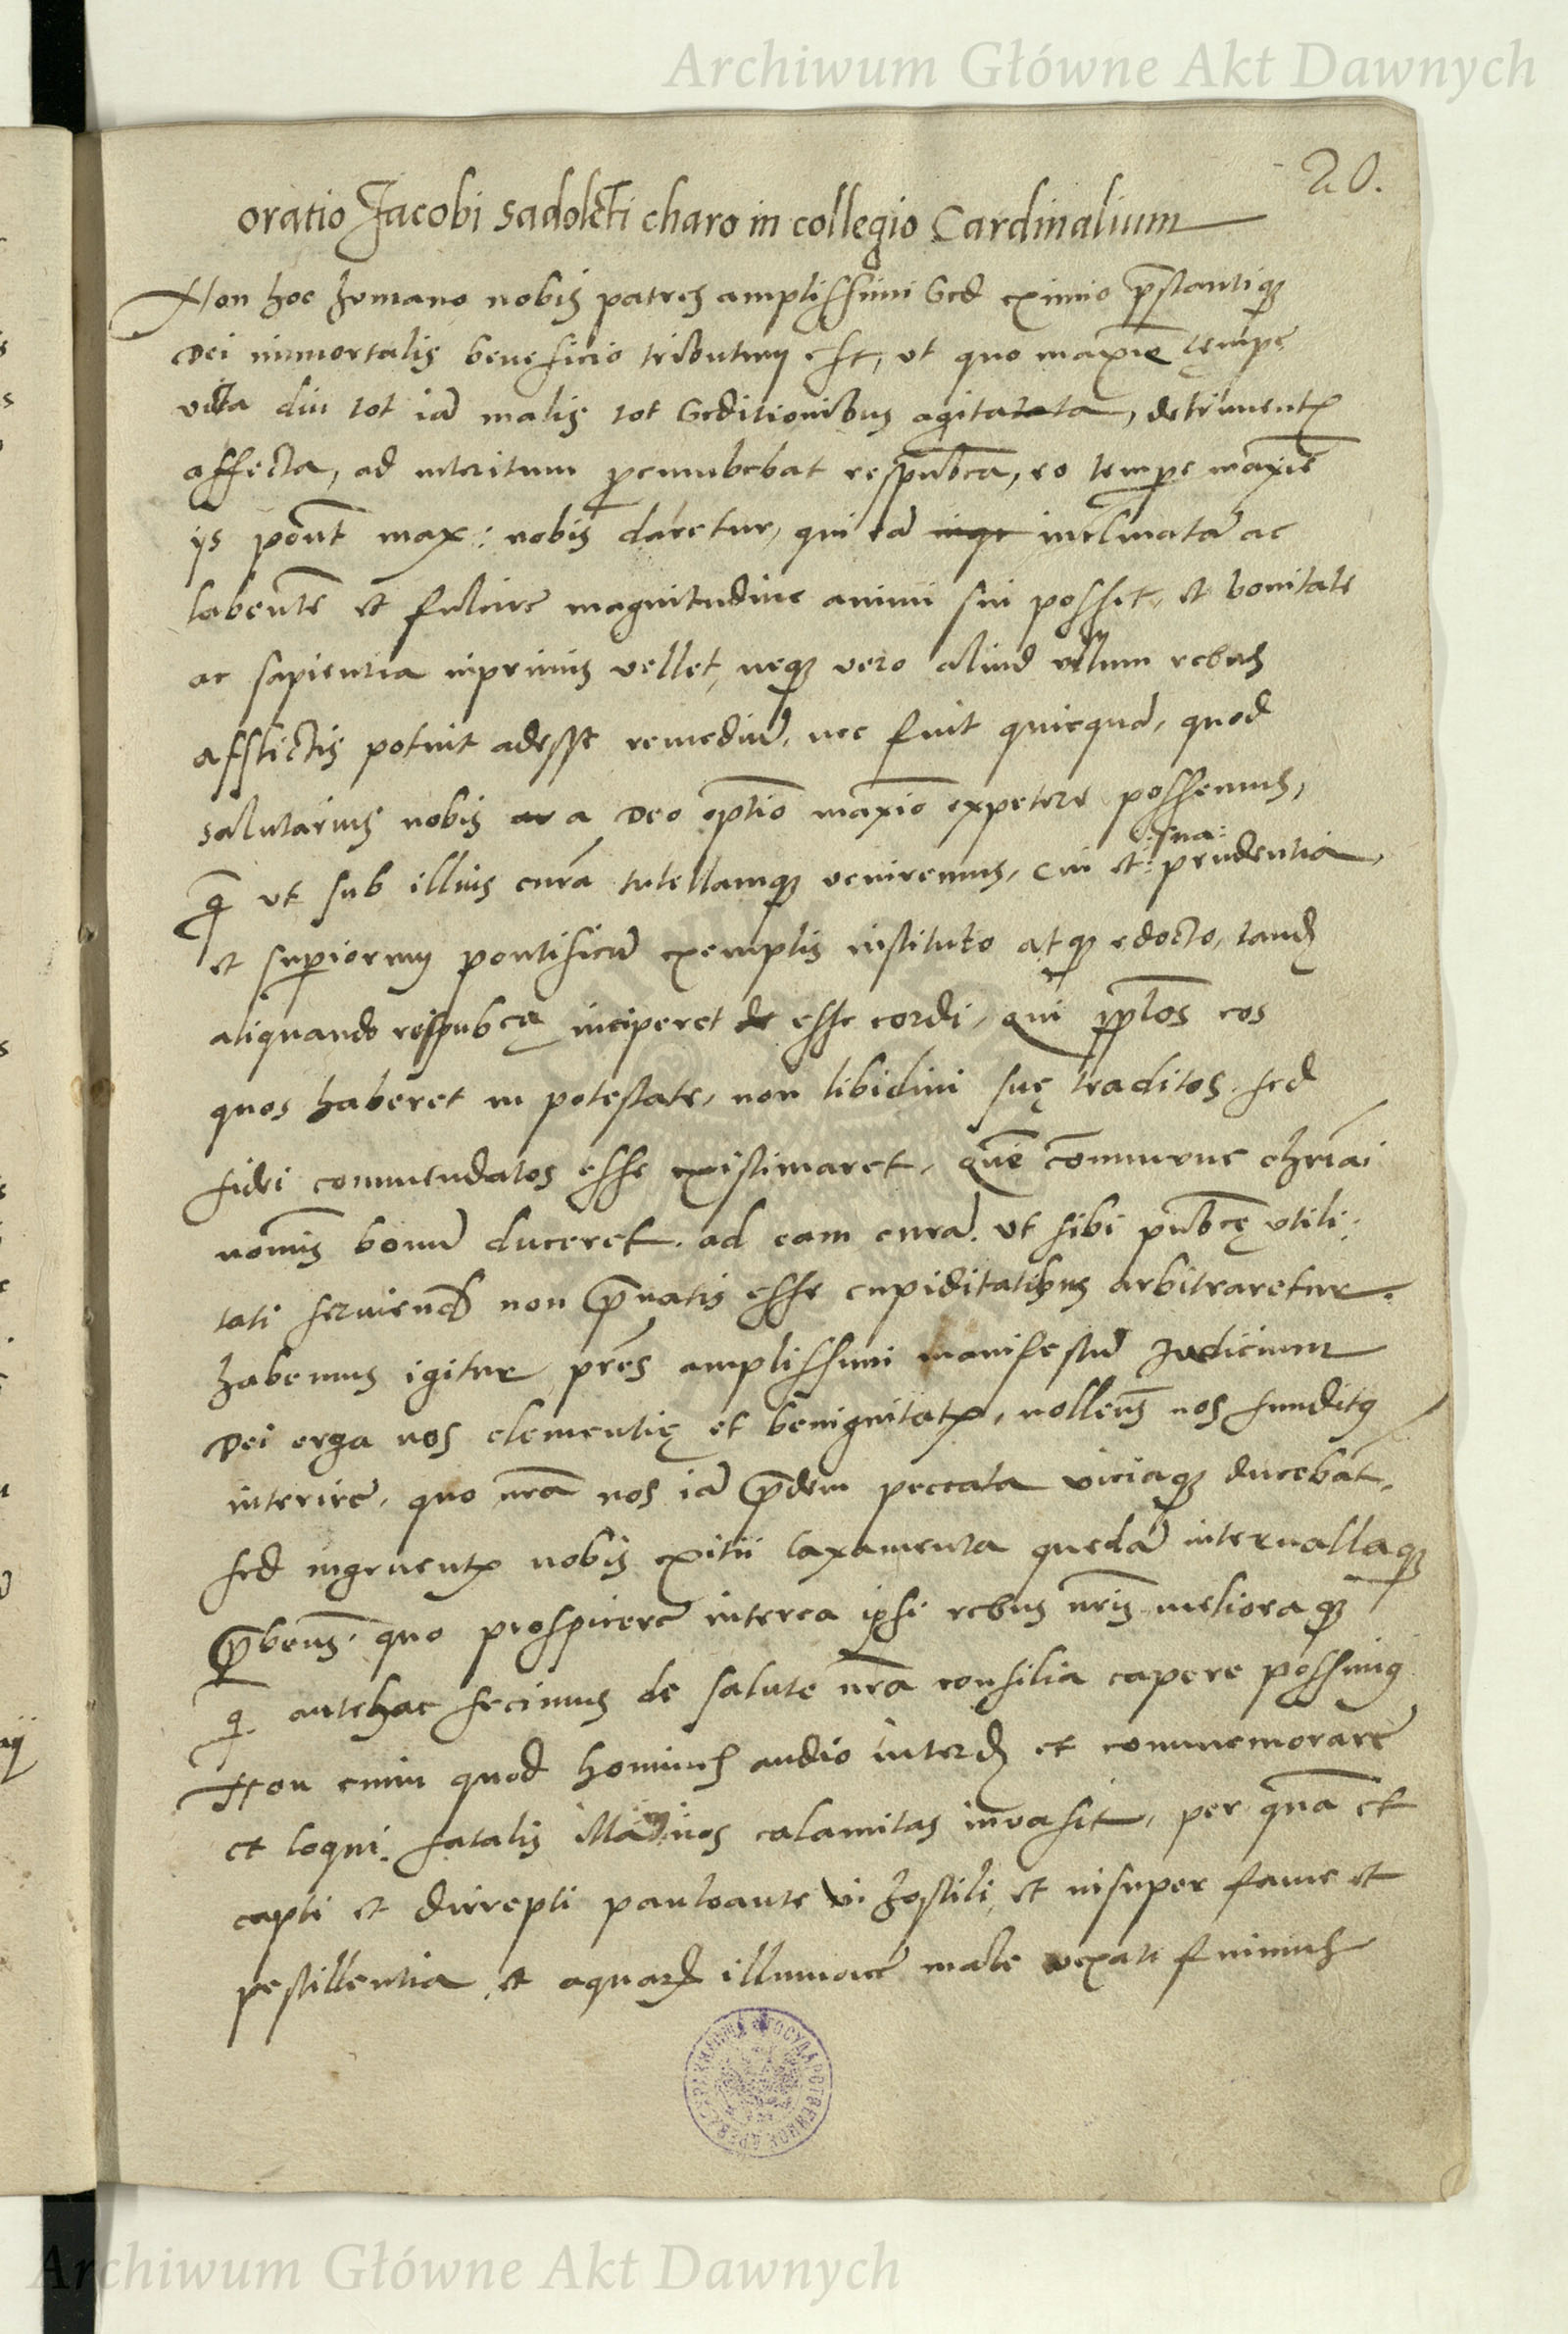 Archiwum Główne Akt Dawnych
20.
oratio Jacobi sadoleti charo in collegio Cardinalium
Non hoc humano nobis patres amplissimi sed eximio p̄stantiq₃
Dei immortalis beneficio tributum est, ut quo maxīe tempe
victa diu tot iā malis tot seditionibus agitata, detriment
affecta, ad interitum respubca, eo tempe maxīe
ijs pont max: nobis daretur, qui eā inclinatā ac
labentē et fulcire magnitudine animi sui posset, et bonitate
ac sapientia inprimis vellet, neq₃ vero aliud ullum rebus
afflictis potuit adesse remediū, nec fuit quicquā, quod
salutarius nobis a Deo optīo maxīo expetere possemus,
q̄ ut sub illius curā tutellamq₃ veniremus, cui et :sua: prudentia,
et superiorum pontificū exemplis instituto atq₃ edocto, tand
aliquando respubca inciperet esse cordi, qui pp̄los eos
quos haberet in potestate, non libidini suę traditos. sed
fidei commendatos esse existimaret, quē commune chrīai
nomīs bonū duceret. ad eam curā. ut sibi pubcę utili:
tati seruiend non p̄uatis esse cupiditatibus arbitraretur.
habemus igitur pr̄es amplissimi manifestū Judicium
Dei erga nos clementię et benignitat, nollens nos funditus
interire, quo nr̄a nos iā p̄dem peccata viciaq₃ ducebāt,
sed ingruent nobis exitii laxamenta quedā interuallaq₃
p̄bens. quo prospicere interea ipsi rebus nr̄is melioraq₃
q. antehac fecimus de salute nr̄a consilia capere possimus
Non enim quod homines audio interd et commemorare
et loqui. fatalis nos calamitas inuasit, per quā et
capti et dirrepti pauloante vi hostili, et insuper fame et
pestillentia, et aquar illuuione male vexati fuimus
Archiwum Główne Akt Dawnych